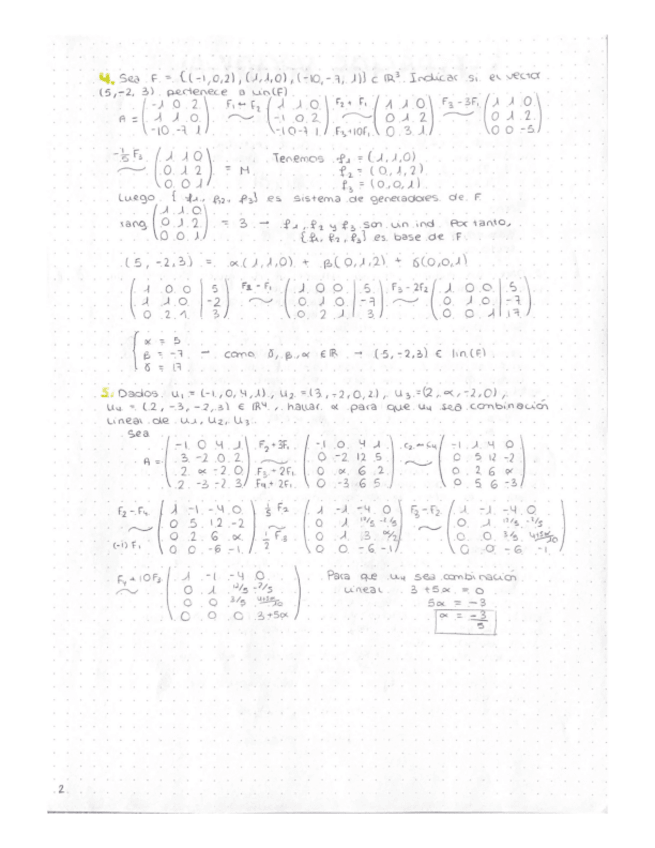 4. Sea F = {(-1,0,2), (1,1,0), (-10,-7,1)} ⊂ ℝ³. Indicar si el vector
(5,-2,3) pertenece a lin(F).
A = (-1 0 2 / 1 1 0 / -10 -7 1) F₁↔F₂ ~ (1 1 0 / -1 0 2 / -10 -7 1) F₂+F₁ ~ F₃+10F₁ (1 1 0 / 0 1 2 / 0 3 1) F₃-3F₂ ~ (1 1 0 / 0 1 2 / 0 0 -5)
-1/5 F₃ ~ (1 1 0 / 0 1 2 / 0 0 1) = M
Tenemos f₁ = (1,1,0)
f₂ = (0,1,2)
f₃ = (0,0,1)
Luego {f₁, f₂, f₃} es sistema de generadores de F.
rang (1 1 0 / 0 1 2 / 0 0 1) = 3 → f₁, f₂ y f₃ son lin ind. Por tanto,
{f₁, f₂, f₃} es base de F
(5,-2,3) = α(1,1,0) + β(0,1,2) + δ(0,0,1)
(1 0 0 | 5 / 1 1 0 | -2 / 0 2 1 | 3) F₂-F₁ ~ (1 0 0 | 5 / 0 1 0 | -7 / 0 2 1 | 3) F₃-2F₂ ~ (1 0 0 | 5 / 0 1 0 | -7 / 0 0 1 | 17)
α = 5
β = -7 → como δ, β, α ∈ ℝ → (5,-2,3) ∈ lin(F)
δ = 17
5. Dados u₁ = (-1,0,4,1), u₂ = (3,-2,0,2), u₃ = (2,α,-2,0),
u₄ = (2,-3,-2,3) ∈ ℝ⁴, hallar α para que u₄ sea combinación
lineal de u₁, u₂, u₃.
Sea
A = (-1 0 4 1 / 3 -2 0 2 / 2 α -2 0 / 2 -3 -2 3) F₂+3F₁ ~ F₃+2F₁ F₄+2F₁ (-1 0 4 1 / 0 -2 12 5 / 0 α 6 2 / 0 -3 6 5) c₂↔c₄ ~ (-1 1 4 0 / 0 5 12 -2 / 0 2 6 α / 0 5 6 -3)
F₂-F₄ ~ (-1)F₁ (1 -1 -4 0 / 0 5 12 -2 / 0 2 6 α / 0 0 -6 -1) 1/5 F₂ ~ 1/2 F₃ (1 -1 -4 0 / 0 1 12/5 -2/5 / 0 1 3 α/2 / 0 0 -6 -1) F₃-F₂ ~ (1 -1 -4 0 / 0 1 12/5 -2/5 / 0 0 3/5 4+5α/10 / 0 0 -6 -1)
F₄+10F₃ ~ (1 -1 -4 0 / 0 1 12/5 -2/5 / 0 0 3/5 4+5α/10 / 0 0 0 3+5α)
Para que u₄ sea combinación
lineal 3+5α = 0
5α = -3
α = -3/5
2